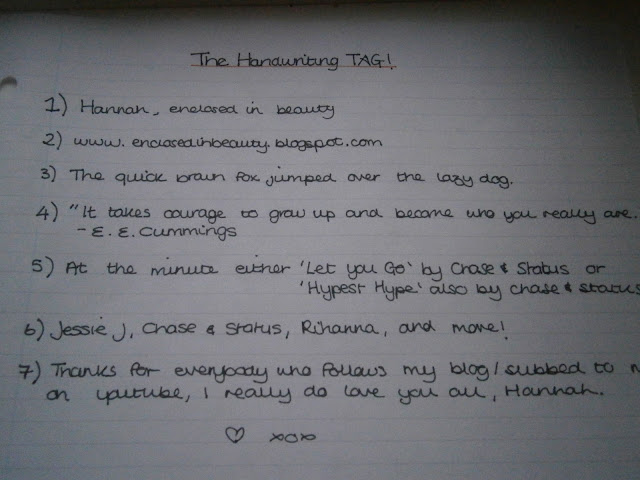 The Handwriting TAG!
1) Hannah, enclosed in beauty
2) www.enclosedinbeauty.blogspot.com
3) The quick brain fox jumped over the lazy dog.
4) "It takes courage to grow up and become who you really are.
- E. E. Cummings
5) At the minute either 'Let you Go' by Chase & Status or
'Hypest Hype' also by chase & status
6) Jessie J, Chase & Status, Rihanna, and more!
7) Thanks for everybody who follows my blog/subbed to
on youtube, I really do love you all, Hannah.
♡ xox